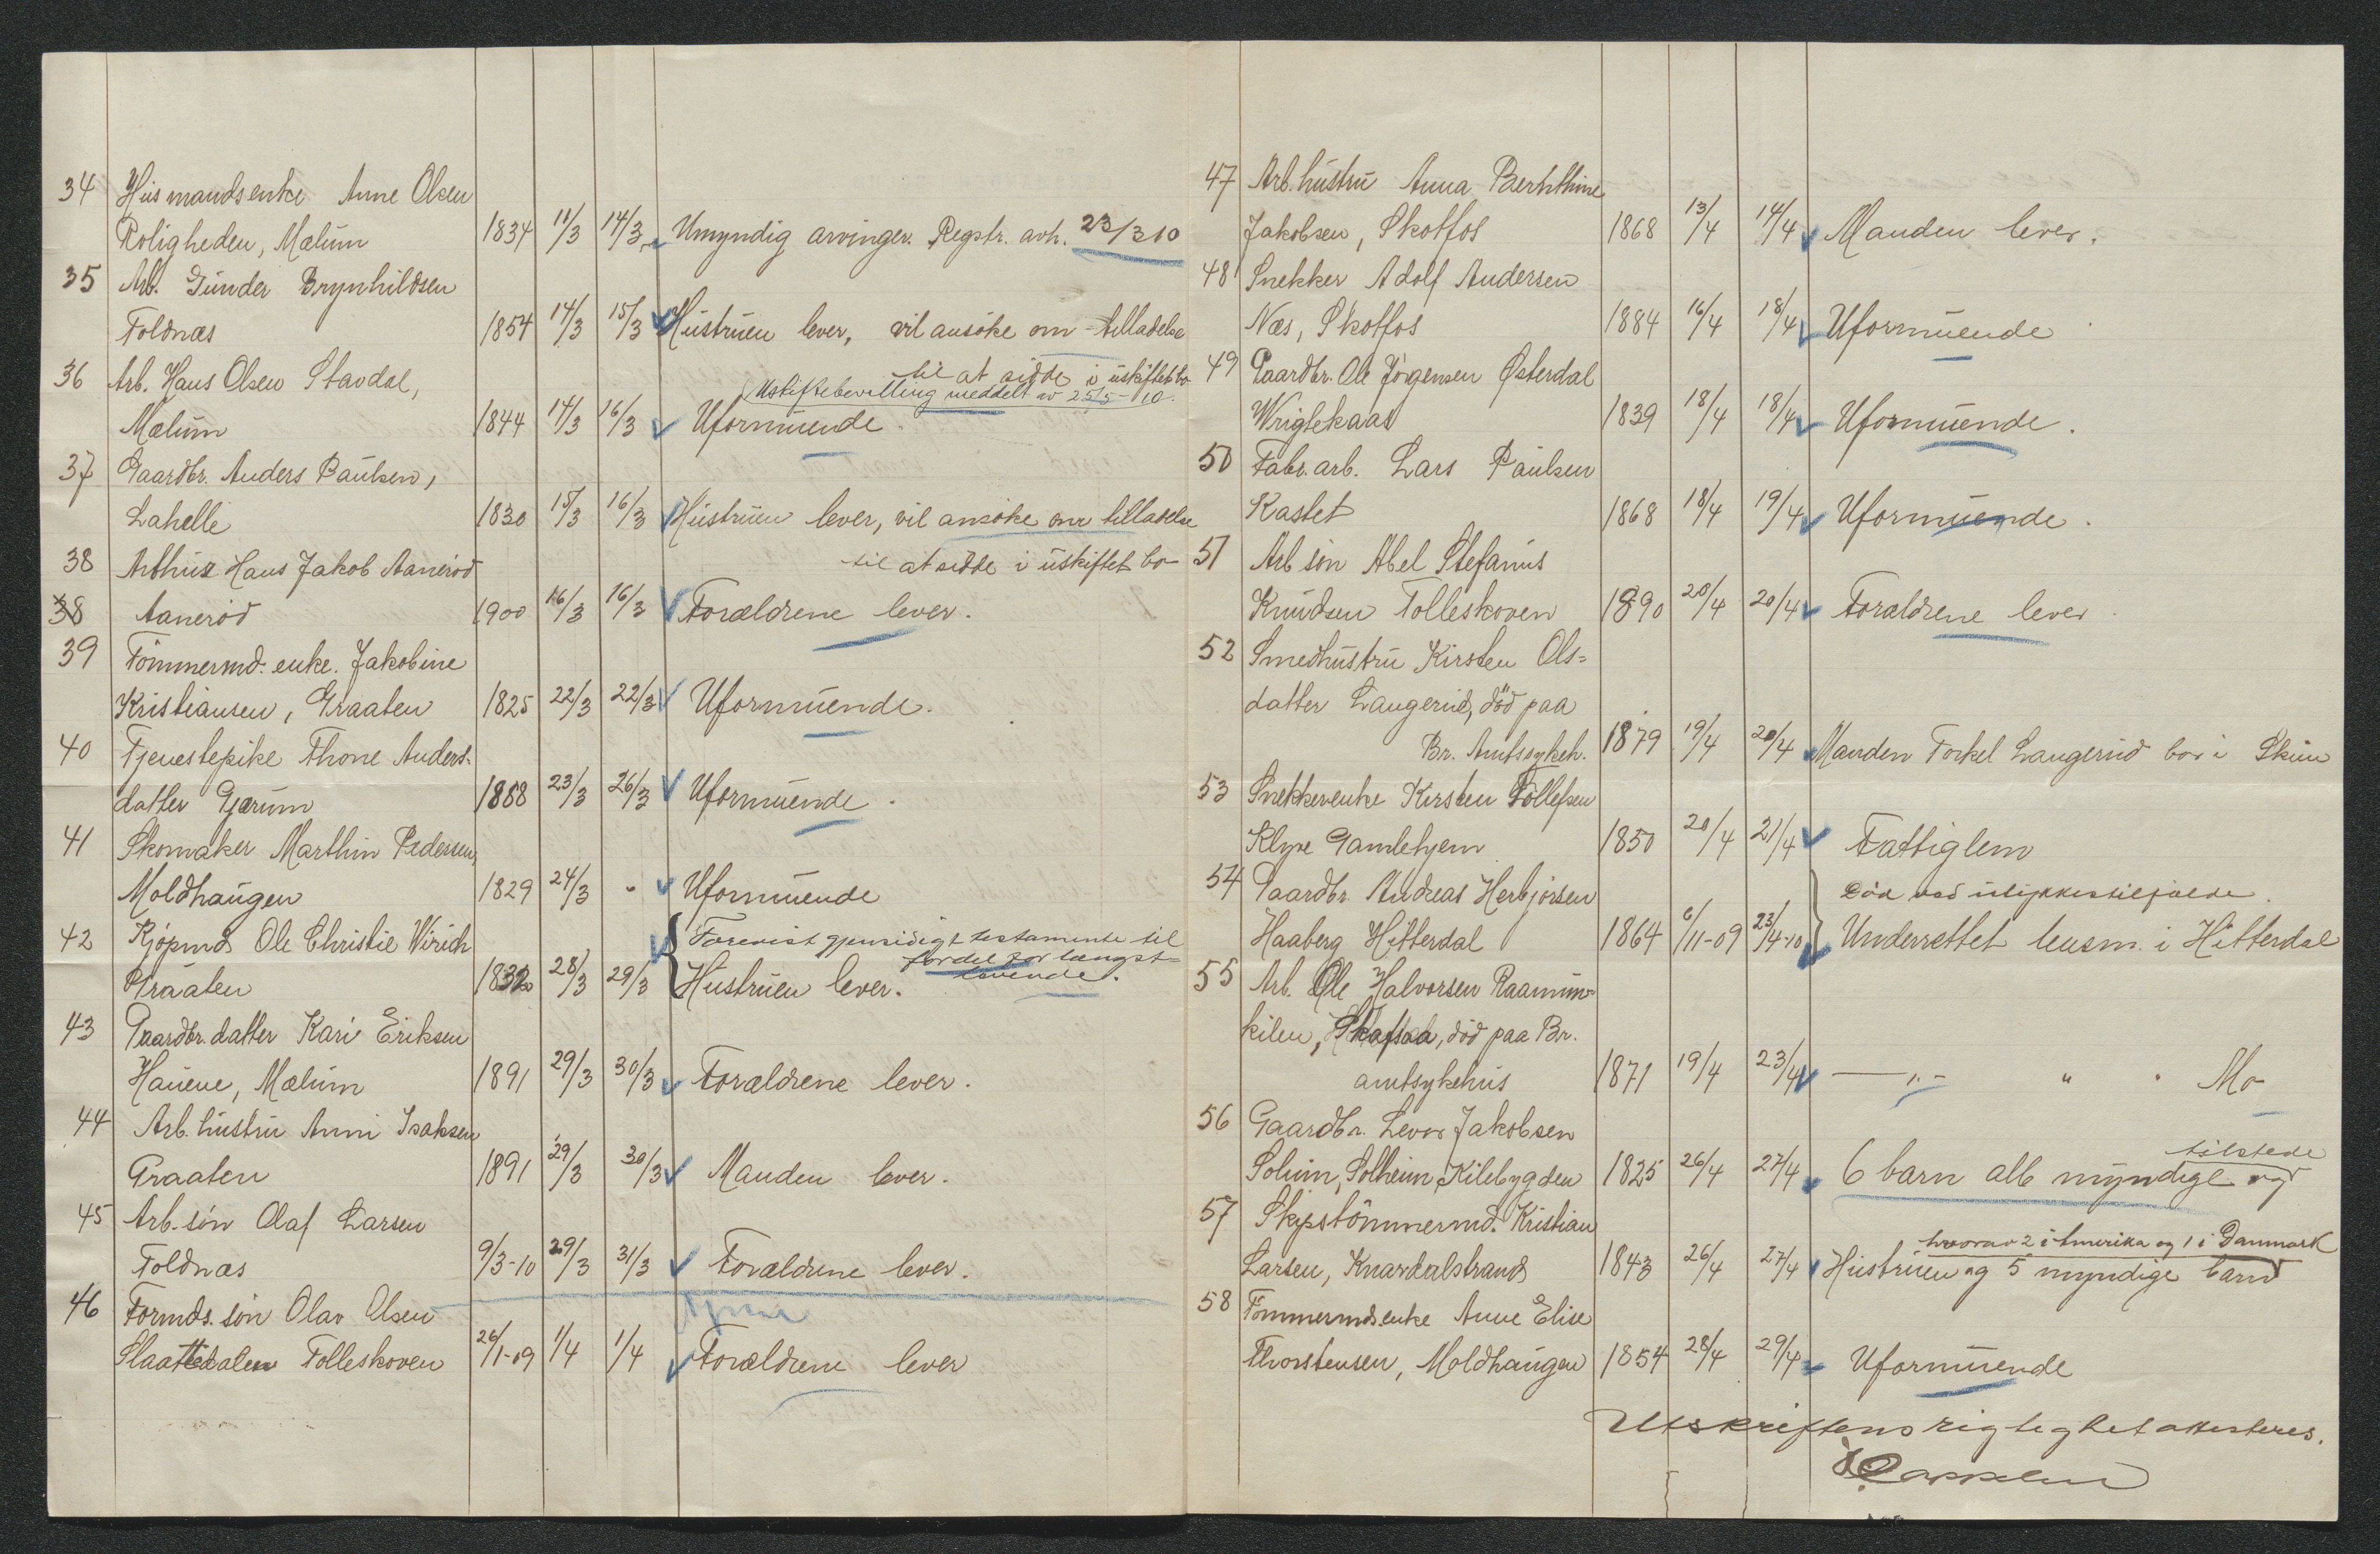 34 Husmandsenke Anne Olsen
Roligheden, Mælum 1834 11/3 14/3 Umyndig arvinger. Regstr. avh. 23/3 10
35 Arb. Gunder Brynhildsen
Foldnæs 1854 14/3 15/3 Hustruen lever, vil ansöke om tilladelse
til at sidde i uskiftet bo
36 Arb. Hans Olsen Stavdal, Uskiftebevilling meddelt av 25/5-10.
Mælum 1844 14/3 16/3 Uformuende.
37 Gaardbr. Anders Paulsen,
Lahelle 1830 15/3 16/3 Hustruen lever, vil ansöke om tilladelse
til at sidde i uskiftet bo
38 Arthur Hans Jakob Aaneröd
38 Aaneröd 1900 16/3 16/3 Forældrene lever.
39 Tömmermd. enke. Jakobine
Kristiansen, Graaten 1825 22/3 22/3 Uformuende.
40 Tjenestepike Thone Anders-
datter Gjærum 1888 23/3 26/3 Uformuende.
41 Skomaker Marthin Pedersen,
Moldhaugen 1829 24/3 " Uformuende
42 Kjöpmd. Ole Christie Wirich Forevist gjensidigt testamente til
fordel for længst-
levende.
Graaten 1832 28/3 29/3 Hustruen lever.
43 Gaardbr. datter Kari Eriksen
Hauene, Mælum 1891 29/3 30/3 Forældrene lever.
44 Arb. hustru Anni Isaksen
Graaten 1891 29/3 30/3 Manden lever.
45 Arb. sön Olaf Larsen
Foldnæs 9/3-10 29/3 31/3 Forældrene lever.
46 Formds. sön Olav Olsen
Slaattedalen Tolleskoven 26/1-09 1/4 1/4 Forældrene lever
47 Arb. hustru Anna Berhthine
Jakobsen, Skotfos 1868 13/4 14/4 Manden lever.
48 Snekker Adolf Andersen
Næs, Skotfos 1884 16/4 18/4 Uformuende
49 Gaardbr. Ole Jörgensen Østerdal
Wriglekaas 1839 18/4 18/4 Uformuende.
50 Fabr. arb. Lars Paulsen
Kastet 1868 18/4 19/4 Uformuende.
51 Arb sön Abel Stefanus
Knudsen Tolleskoven 1890 20/4 20/4 Forældrene lever
52 Smedhustru Kirsten Ols=
datter Langerud, död paa
Br. Amtssykeh. 1879 19/4 20/4 Manden Torkel Langerud bor i Skien
53 Snekkerenke Kirsten Tollefsen
Klyve Gamlehjem 1850 20/4 21/4 Fattiglem
54 Gaardbr. Andreas Herbjörsen Död ved ulykkestilfælde.
Haaberg Hitterdal 1864 6/11-09 23/4-10 Underrettet lensm. i Hitterdal
55 Arb. Ole Halvorsen Raamun-
kilen, Skafsaa, död paa Br.
amtsykehus 1871 19/4 23/4 —"— " " Mo
56 Gaardbr. Levor Jakobsen
tilstede
Solum, Solheim, Kilebygden 1825 26/4 27/4 6 barn alle myndige og
57 Skipstömmermd. Kristian
hvorav 2 i Amerika og 1 i Danmark
Larsen, Knardalstrand 1843 26/4 27/4 Hustruen og 5 myndige barn
58 Tömmermdsenke Anne Elise
Thorstensen, Moldhaugen 1854 28/4 29/4 Uformuende
Utskriftens rigtighet attesteres.
Cappelen